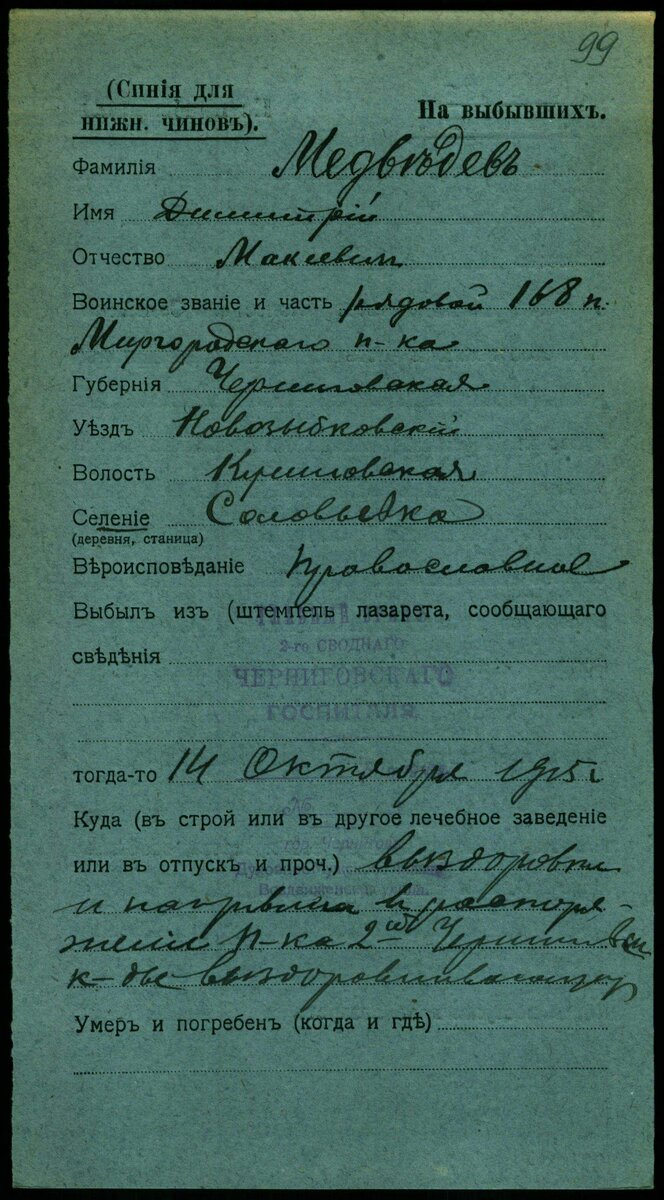 99
(Синія для
нижн. чиновъ).
На выбывшихъ.
Фамилія Медвѣдевъ
Имя Димитрій
Отчество
Воинское званіе и часть рядовой 168 п.
Миргородскаго п-ка
Губернія Черниговская
Уѣздъ Новозыбковскій
Волость
Селеніе Соловьевка
(деревня, станица)
Вѣроисповѣданіе Православное
Выбылъ изъ (штемпель лазарета, сообщающаго
2-го СВОДНАГО
свѣдѣнія
ЧЕРНИГОВСКАГО
ГОСПИТАЛЯ
тогда-то 14 Октября 1915 г
№
Куда (въ строй или въ другое лечебное заведеніе
гор. Черниговъ
или въ отпускъ и проч.)
и
п-ка 2ой
к-ды
Умеръ и погребенъ (когда и гдѣ)